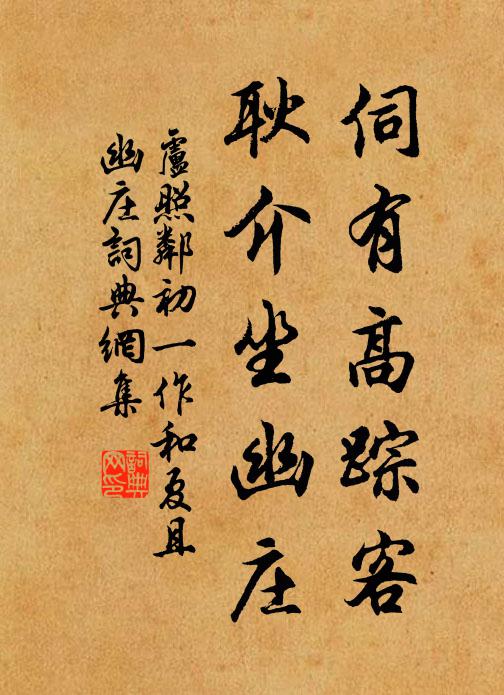 伺有高踪客
耿介坐幽庄
盧照鄰初一作和夏且
幽庄詞典網集
詞典
网印